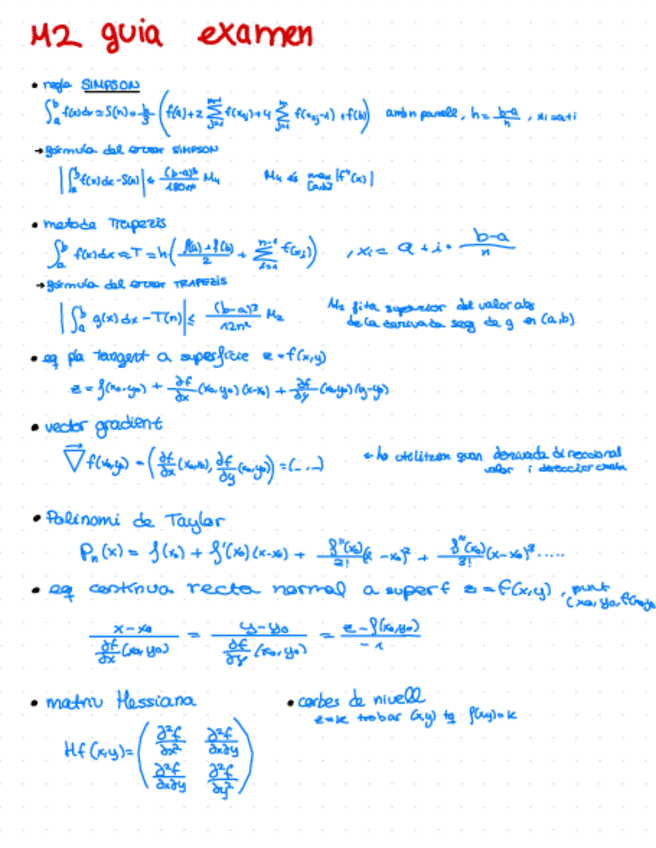 M2 guia examen
• regla SIMPSON
∫_a^b f(x)dx ≈ S(n) = h/3 (f(a) + 2 Σ f(x_{2j}) + 4 Σ f(x_{2j-1}) + f(b)) amb n parell, h = (b-a)/n
→ fórmula del error SIMPSON
|∫_a^b f(x)dx - S(n)| ≤ (b-a)^5/180n^4 M_4 M_4 és max_[a,b]
• metode Trapezis
∫_a^b f(x)dx ≈ T = h((f(a)+f(b))/2 + Σ_{i=1}^{n-1} f(x_i)) , x_i = a + i · (b-a)/n
→ fórmula del error TRAPEZIS
|∫_a^b g(x)dx - T(n)| ≤ (b-a)^3/12n^2 M_2 M_2 fita superior del valor abs
de la derivada seg de g en (a,b)
• eq pla tangent a superfície z = f(x,y)
z = f(x_0,y_0) + ∂f/∂x (x_0,y_0)(x-x_0) + ∂f/∂y (x_0,y_0)(y-y_0)
• vector gradient
∇f(x_0,y_0) = (∂f/∂x (x_0,y_0), ∂f/∂y (x_0,y_0)) = (_ , _) ← ho utilitzem quan derivada direccional
valor i
• Polinomi de Taylor
P_n(x) = f(x_0) + f'(x_0)(x-x_0) + f''(x_0)/2! (x-x_0)^2 + f'''(x_0)/3! (x-x_0)^3 .....
• eq contínua recta normal a superf z = f(x,y) , punt
(x_0, y_0, f(x_0,y_0
(x-x_0)/(∂f/∂x (x_0,y_0)) = (y-y_0)/(∂f/∂y (x_0,y_0)) = (z - f(x_0,y_0))/-1
• matriu Hessiana
Hf(x,y) = (∂²f/∂x² ∂²f/∂x∂y
∂²f/∂x∂y ∂²f/∂y²)
• corbes de nivell
z=k trobar (x,y) tq f(x,y)=k